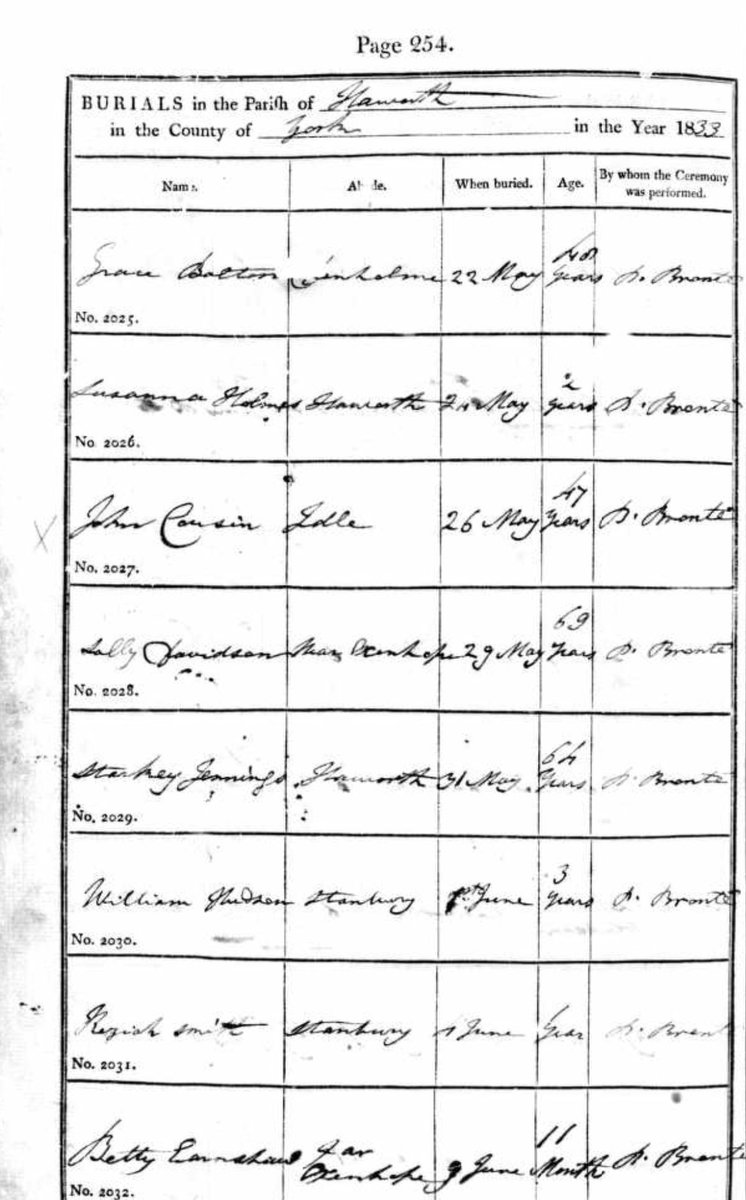 Page 254.
BURIALS in the Parish of Haworth
in the County of York in the Year 1833
Name. Abode. When buried. Age. By whom the Ceremony was performed.
Grace Bolton 22 May 48 Years P. Brontë
No. 2025.
Susanna Holmes Haworth 24 May 2 Years P. Brontë
No 2026.
John Cousin Idle 26 May 47 Years P. Brontë
No. 2027.
Sally Davidson Near Oxenhope 29 May 69 Years P. Brontë
No. 2028.
Starkey Jennings Haworth 31 May 64 Years P. Brontë
No. 2029.
William Hudson Stanbury 1st June 3 Years P. Brontë
No. 2030.
Keziah Smith Stanbury June Year P. Brontë
No. 2031.
Betty Earnshaw Far Oxenhope 9 June 11 Month P. Brontë
No. 2032.